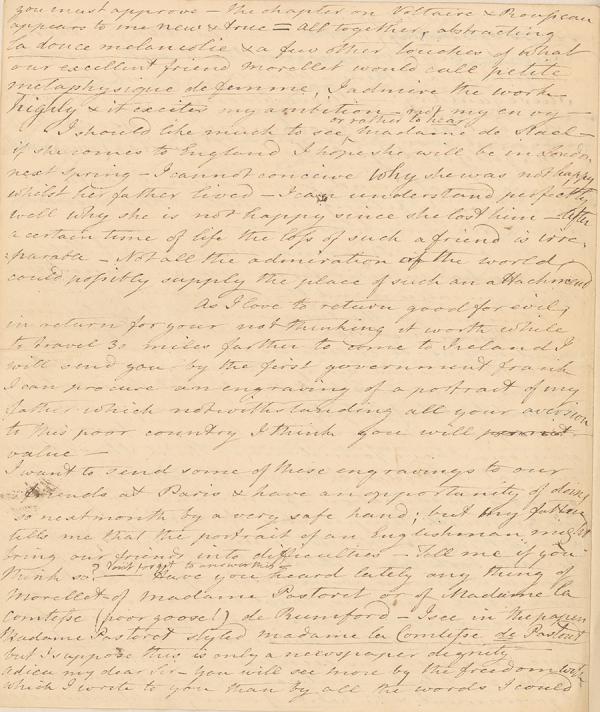 you must approve – The chapter on Voltaire & Rousseau
appears to me new & true = all together, abstracting
la douce melancolie & a few other touches of what
our excellent friend Morellet would call petite
metaphysique de femme, I admire the work
highly & it excites my ambition not my envy –
or rather to hear
I should like much to see, Madame de Stael –
if she comes to England I hope she will be in London
next spring – I cannot conceive why she was not happy
whilst her father lived – I can understand perfectly
well why she is not happy since she lost him – After
a certain time of life the loss of such a friend is irre-
-parable – Not all the admiration of the world
could possibly supply the place of such an attachment
As I love to return good for evil,
in return for your not thinking it worth while
to travel 30 miles farther to come to Ireland I
will send you by the first government frank
I can procure an engraving of a portrait of my
father which notwithstanding all your aversion
to this poor country I think you will
value –
I want to send some of these engravings to our
friends at Paris & have an opportunity of doing
so next month by a very safe hand; but my father
tells me that the portrait of an Englishman might
bring our friends into difficulties – Tell me if you
think so? Don't forget to answer this – Have you heard lately any thing of
Morellet of madame Pastoret or of Madame la
Comtesse (poor goose!) de Rumford – I see in the papers
Madame Pastoret styled madame la Comtesse de Pastoret
but I suppose this is only a newspaper dignity –
Adieu my dear Sir – You will see more by the freedom with
which I write to you than by all the words I could